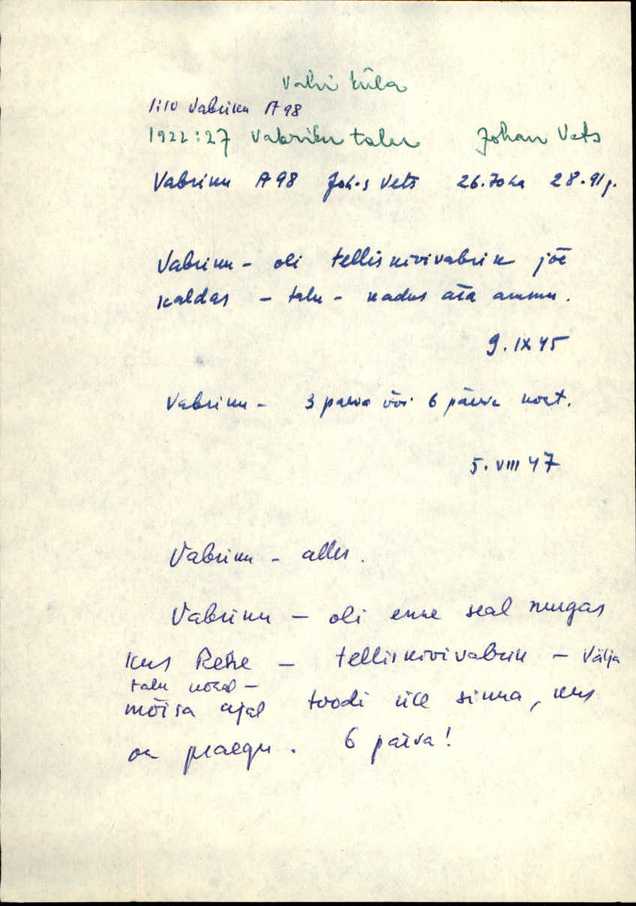 Vahi küla
1:10 Vabriku A98
1922:27 Vabriku talu Johan Vets
Vabriku A98 Joh-s Vets 26.70ha 28.91
Vabriku - oli telliskivivabrik jõe
kaldas - talu - kadus ära ammu.
9.IX 45
Vabriku - 3 päeva või 6 päeva koht.
5.VIII 47
Vabriku - alles.
Vabriku - oli enne seal nurgas
kus Rehe - telliskivivabrik - Välja
talu kõrval -
mõisa ajal toodi üle sinna, kus
on praegu. 6 päeva!